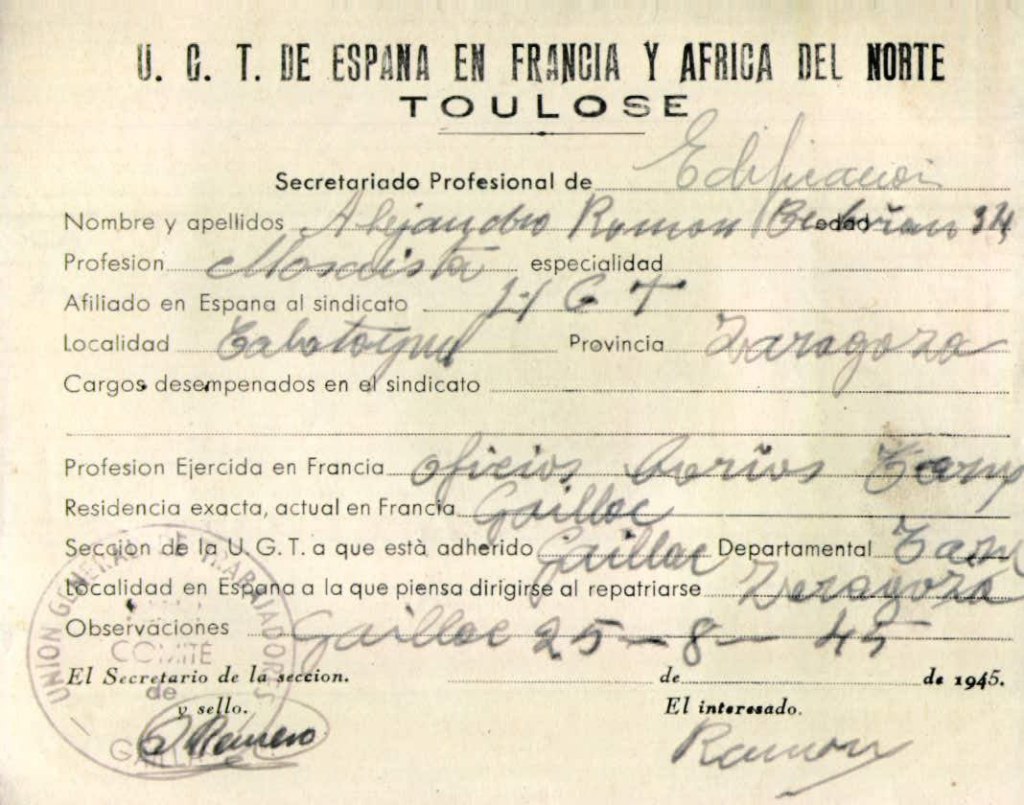 U. G. T. DE ESPANA EN FRANCIA Y AFRICA DEL NORTE
TOULOSE
Secretariado Profesional de Edificacion
Nombre y apellidos Alejandro Ramon edad 34
Profesion Mosaista especialidad
Afiliado en Espana al sindicato U G T
Localidad Provincia Zaragoza
Cargos desempenados en el sindicato
Profesion Ejercida en Francia oficios barios
Residencia exacta, actual en Francia Gaillac
Sección de la U. G. T. a que està adherido Gaillac Departamental Tarn
Localidad en Espana a la que piensa dirigirse al repatriarse Zeragoza
Observaciones Gaillac 25-8-45
El Secretario de la seccion. de de 1945.
y sello. El interesado.
Romero Ramon
UNION GENERAL DE TRABAJADORES
COMITÉ
de